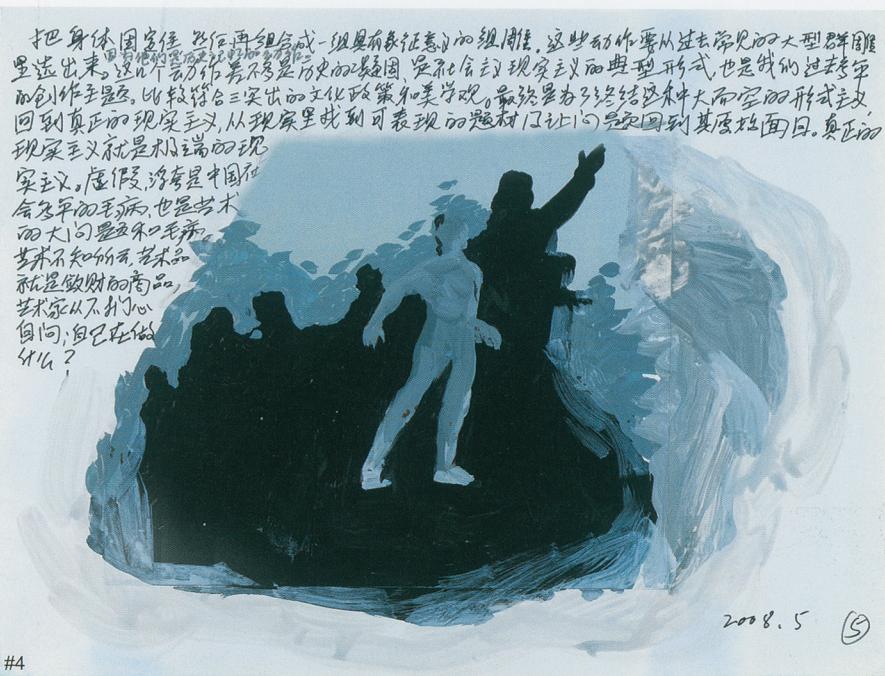 把身体固定住，然后再组合成一组具有象征意义的组雕。这些动作要从过去常见的大型群雕
里选出来。这几个动作看不是历史的凝固，是社会主义现实主义的典型形式，也是我们过去多年
因为他们是历史
的创作主题。比较符合三突出的文化政策和美学观。最终是为了终结这种大而空的形式主义
回到真正的现实主义，从现实里找到可表现的题材，让问题回到其原始面目。真正的
现实主义就是极端的现
实主义。虚假、浮夸是中国社
会多年的毛病，也是艺术
的大问题和毛病
艺术不知所云，艺术品
就是敛财的商品，
艺术家从不扪心
自问；自己在做
什么？
2008.5
⑤
#4